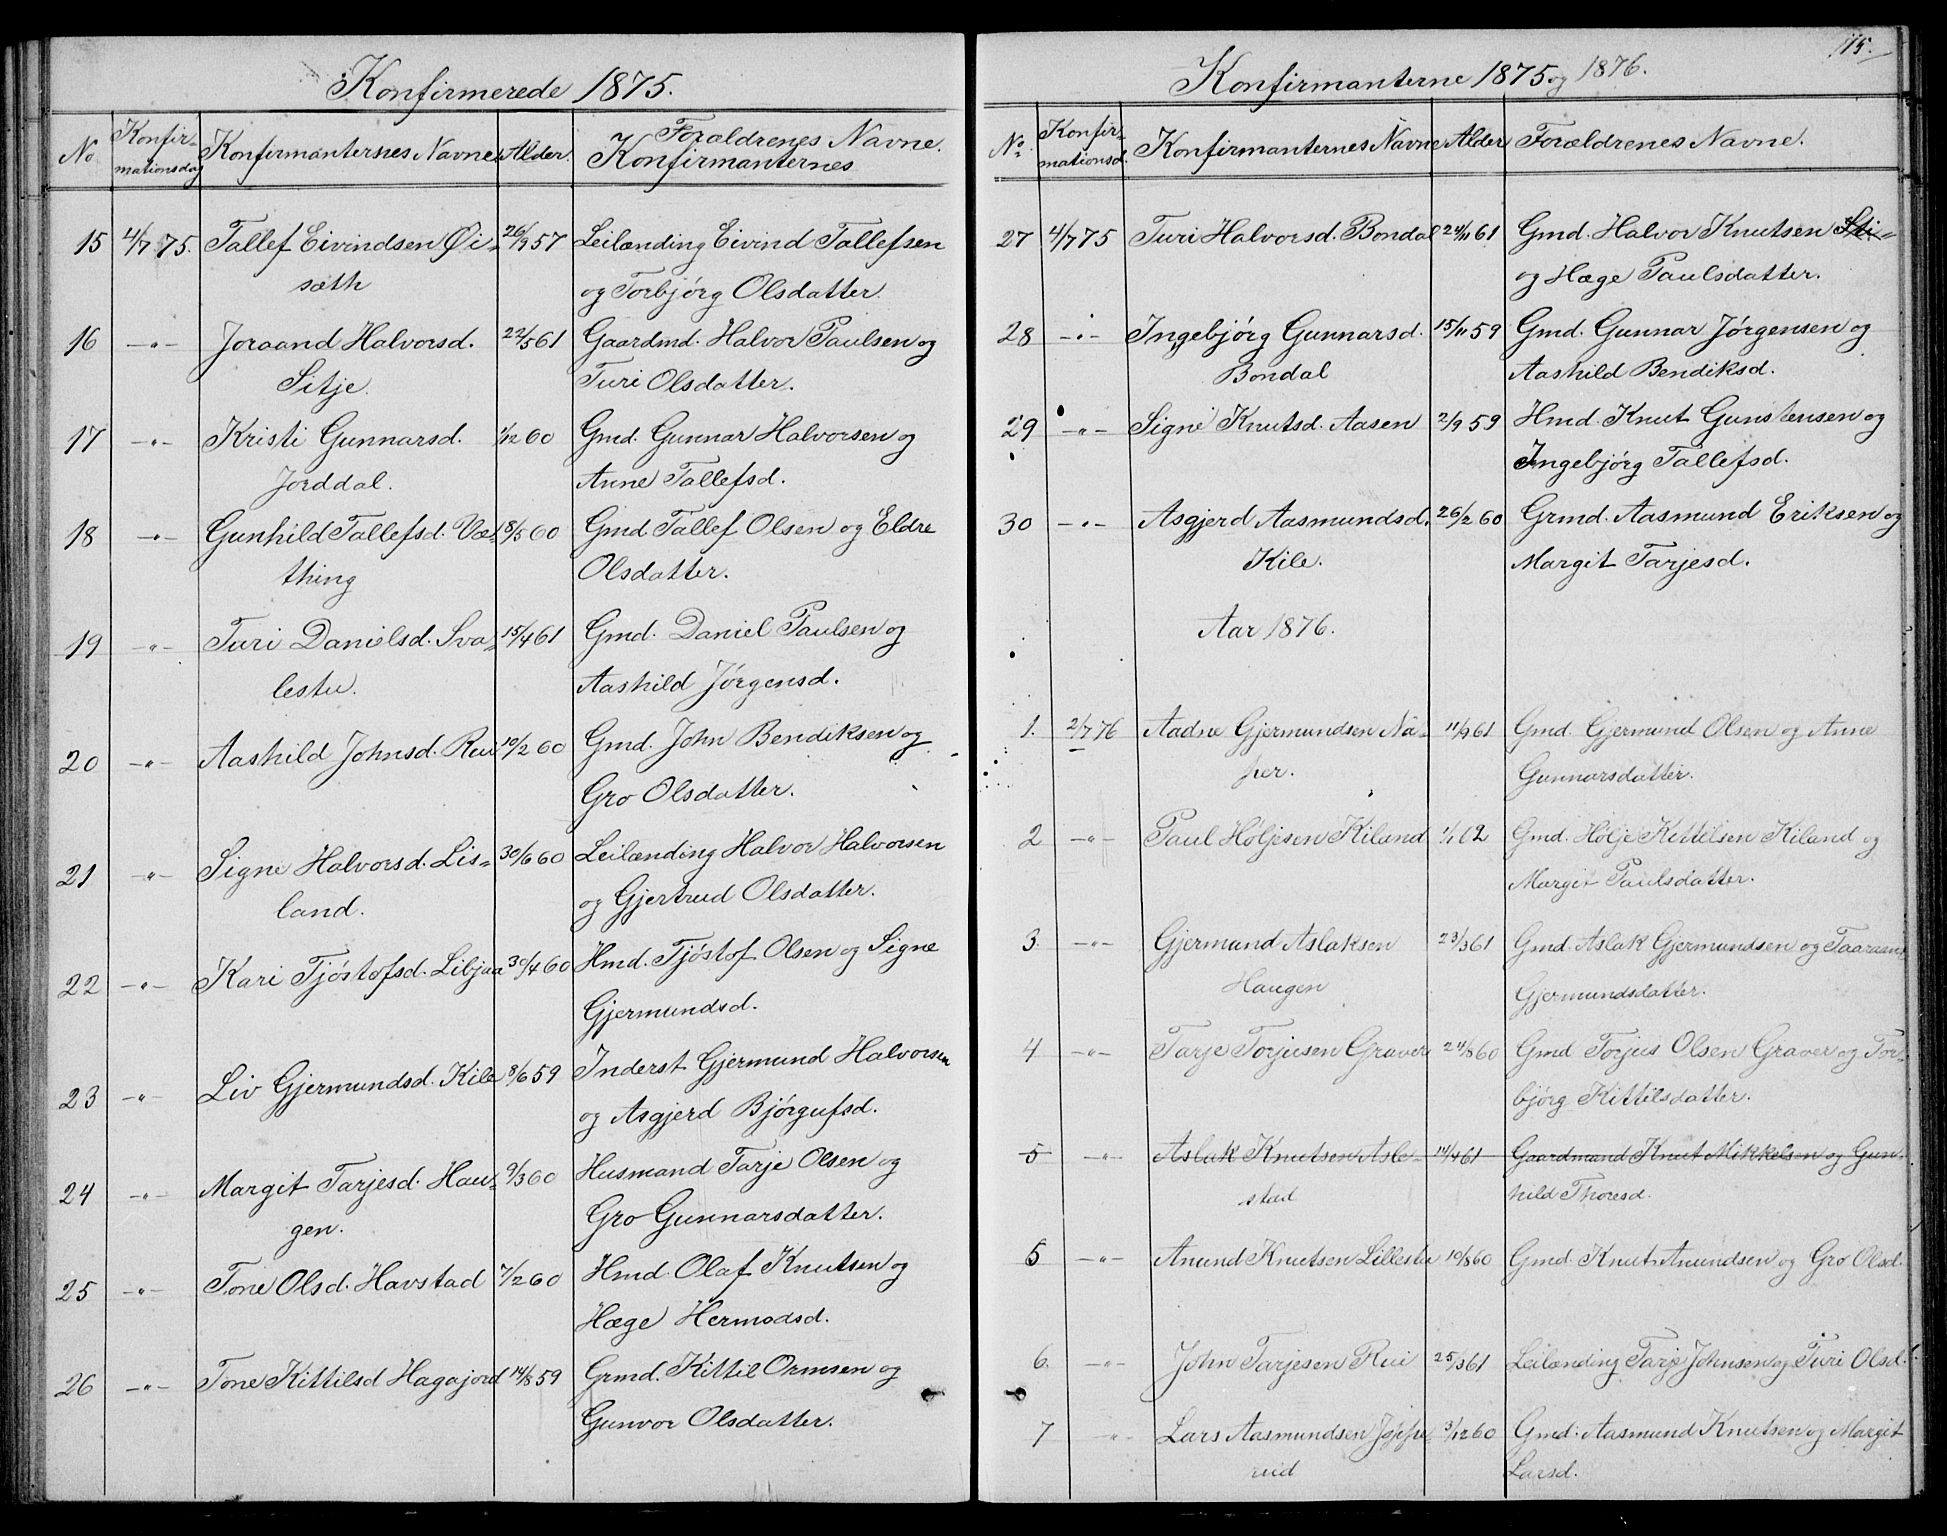 Konfirmerede 1875.
No Konfir- Konfirmanternes Navne Alder. Forældrenes Navne.
mationsdag Konfirmanternes
15 4/7 75. Tallef Eivindsen Øi- 26/9 57 Leilænding Eivind Tallefsen
sæth og Torbjørg Olsdatter.
16 -"- Joraand Halvorsd. 22/5 61 Gaardmd. Halvor Paulsen og
Sitje. Turi Olsdatter.
17 -"- Kristi Gunnarsd. 1/12 60 Gmd. Gunnar Halvorsen og
Jorddal. Anne Tallefsd.
18 -"- Gunhild Tallefsd. Væ- 18/5 60 Gmd. Tallef Olsen og Eldre
thing Olsdatter.
19 -"- Turi Danielsd. Sva- 15/4 61 Gmd. Daniel Paulsen og
lestu. Aashild Jørgensd.
20 -"- Aashild Johnsd. Rui 10/2 60 Gmd. John Bendiksen og
Gro Olsdatter.
21 -"- Signe Halvorsd. Lis- 30/6 60 Leilænding Halvor Halvorsen
land. og Gjertrud Olsdatter.
22 -"- Kari Tjøstofsd. Libjaa 30/4 60 Hmd. Tjøstof Olsen og Signe
Gjermundsd.
23 -"- Liv Gjermundsd. Kile 8/6 59 Inderst Gjermund Halvorsen
og Asgjerd Bjørgufsd.
24 -"- Margit Tarjesd. Hau- 9/3 60 Husmand Tarje Olsen og
gen. Gro Gunnarsdatter.
25 -"- Tone Olsd. Havstad 7/2 60 Hmd. Olaf Knutsen og
Hæge Hermodsd.
26 -"- Tone Kittilsd Hagajord 14/8 59 Grmd. Kittil Ormsen og
Gunvor Olsdatter.
115.
Konfirmanterne 1875 og 1876.
No. Konfir- Konfirmanternes Navne Alder Forældrenes Navne.
mationsd.
27 4/7 75 Turi Halvorsd. Bondal 24/11 61 Gmd. Halvor Knutsen
og Hæge Paulsdatter.
28 -"- Ingebjørg Gunnarsd. 15/11 59 Gmd. Gunnar Jørgensen og
Bondal Aashild Bendiksd.
29 -"- Signe Knutsd. Aasen 2/9 59 Hmd. Knut Gunstensen og
Ingebjørg Tallefsd.
30 -"- Asgjerd Aasmundsd. 26/2 60 Grmd. Aasmund Eriksen og
Kile. Margit Tarjesd.
Aar 1876.
1. 2/7 76 Aadne Gjermundsen Na- 11/9 61 Gmd. Gjermund Olsen og Anne
per. Gunnarsdatter.
2 -"- Paul Høljesen Kiland 1/1 62 Gmd. Hølje Kittelsen Kiland og
Margit Paulsdatter.
3. -"- Gjermund Aslaksen 23/3 61 Gmd. Aslak Gjermundsen og Taaraand
Haugen Gjermundsdatter.
4 -"- Tarje Torjusen Graver 24/8 60 Gmd Torjus Olsen Graver og Tor-
bjørg Kittilsdatter.
5 -"- Aslak Knutsen Asle- 14/4 61 Gaardmand Knut Mikkelsen og Gun-
stad hild Thoresd.
5 -"- Anund Knutsen Lillestu 10/8 60 Gmd. Knut Anundsen og Gro Olsd.
6. -"- John Tarjesen Rui 25/3 61 Leilænding Tarje Johnsen og Turi Olsd.
7 -"- Lars Aasmundsen Jøppe- 3/12 60 Gmd. Aasmund Knutsen og Margit
rud Larsd.